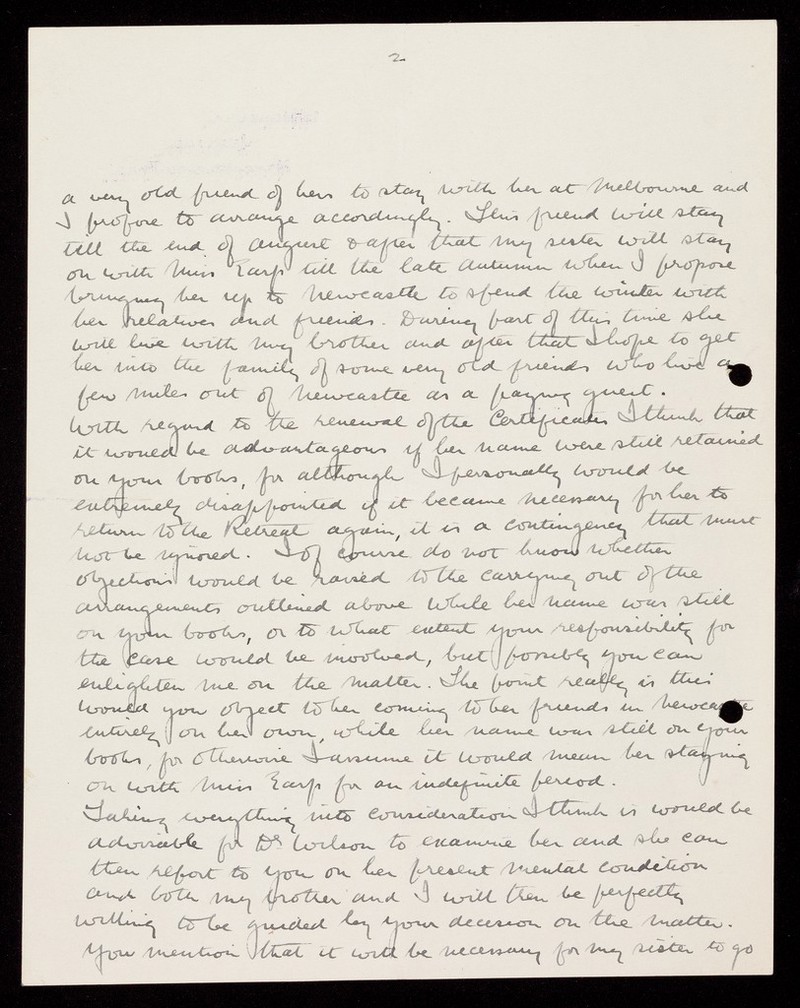 2
a very old friend of hers to stay with her at Melbourne and
I propose to arrange accordingly. This friend will stay
till the end of August & after that my sister will stay
on with Miss Earp till the late autumn when I propose
bringing her up to Newcastle to spend the winter with
her relatives and friends. During part of this time she
will live with my brother and after that I hope to get
her into the family of some very old friends who live a
few miles out of Newcastle as a paying guest.
With regard to the renewal of the Certificates I think that
it would be advantageous if her name were still retained
on your books, for although I personally would be
extremely disappointed if it became necessary for her to
return to the Retreat again, it is a contingency that must
not be ignored. I of course do not know whether
objections would be raised to the carrying out of the
arrangements outlined above while her name was still
on your books, or to what extent your responsibility for
the case would be involved, but possibly you can
enlighten me on the matter. The point really is this
would you object to her coming to her friends in Newcastle
entirely on her own, while her name was still on your
books, for otherwise I assume it would mean her staying
on with Miss Earp for an indefinite period.
Taking everything into consideration I think is would be
advisable for Dr Wilson to examine her and she can
then report to you on her present mental condition
and both my brother and I will then be perfectly
willing to be guided by your decision on the matter.
You mention that it will be necessary for my sister to go